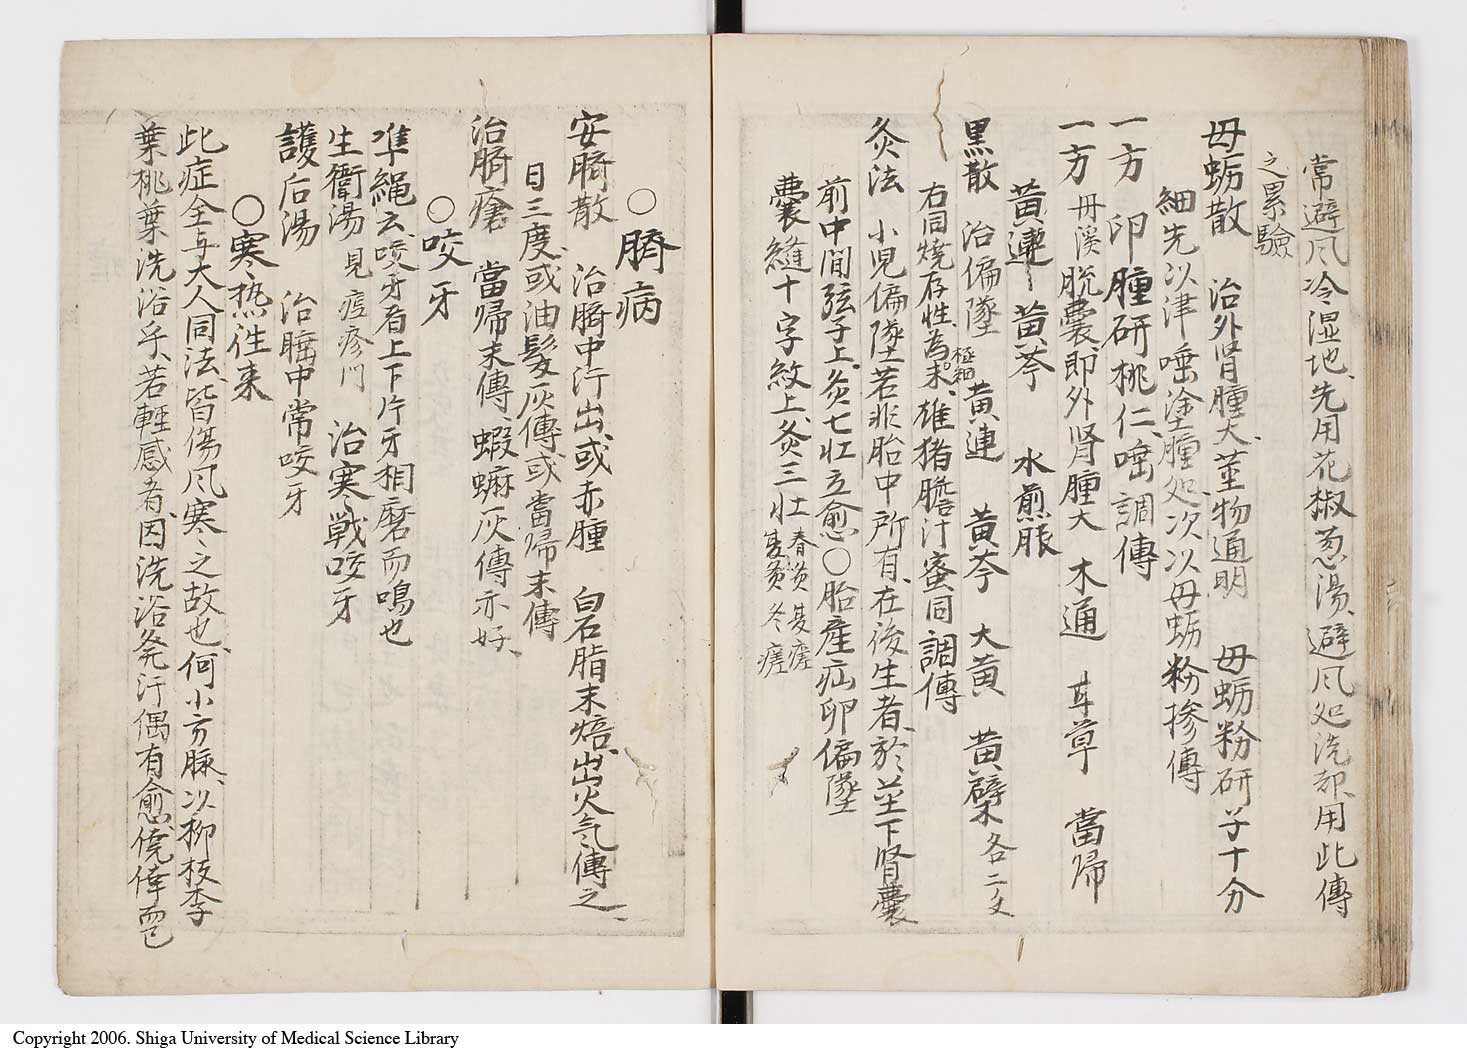 常避风冷湿地、先用花椒葱湯、避风处洗却、用此傅
之累驗
母蛎散 治外肾腫大、莖物通明 母蛎粉研子十分
細先以津唾塗腫処、次以母蛎粉摻傅
一方 卵腫研桃仁、唾調傅
一方 丹溪脫囊、即外肾腫大 木通 甘草 當歸
黄連 黄芩 水煎服
黒散 治偏墜 黄連 黄芩 大黄 黄檗 各二戈
右同燒存性、為末、極細 雄猪膽汁蜜同調傅
灸法 小児偏墜若非胎中所有、在後生者、於莖下腎囊
前中間弦子上、灸七壯立愈○胎産疝卵偏墜
囊縫十字紋上、灸三壯 春灸夏瘥 夏灸冬瘥
○臍病
安臍散 治臍中汁出、或赤腫 白石脂末焙、出火气傅之
日三度、或油髮灰傅或當帰末傅
治臍瘡 當帰末傅、蝦蟆灰傅亦好、
○咬牙
準繩云、咬牙者上下片牙相磨而鳴也
生衛湯 見痘疹门 治寒戦咬牙
護后湯 治睡中常咬牙
○寒热往来
此症全与大人同法、皆傷风寒之故也、何小方脉、以柳枝李
葉桃葉洗浴乎、若輕感者、因洗浴発汗偶有愈、僥倖而已
Copyright 2006. Shiga University of Medical Science Library